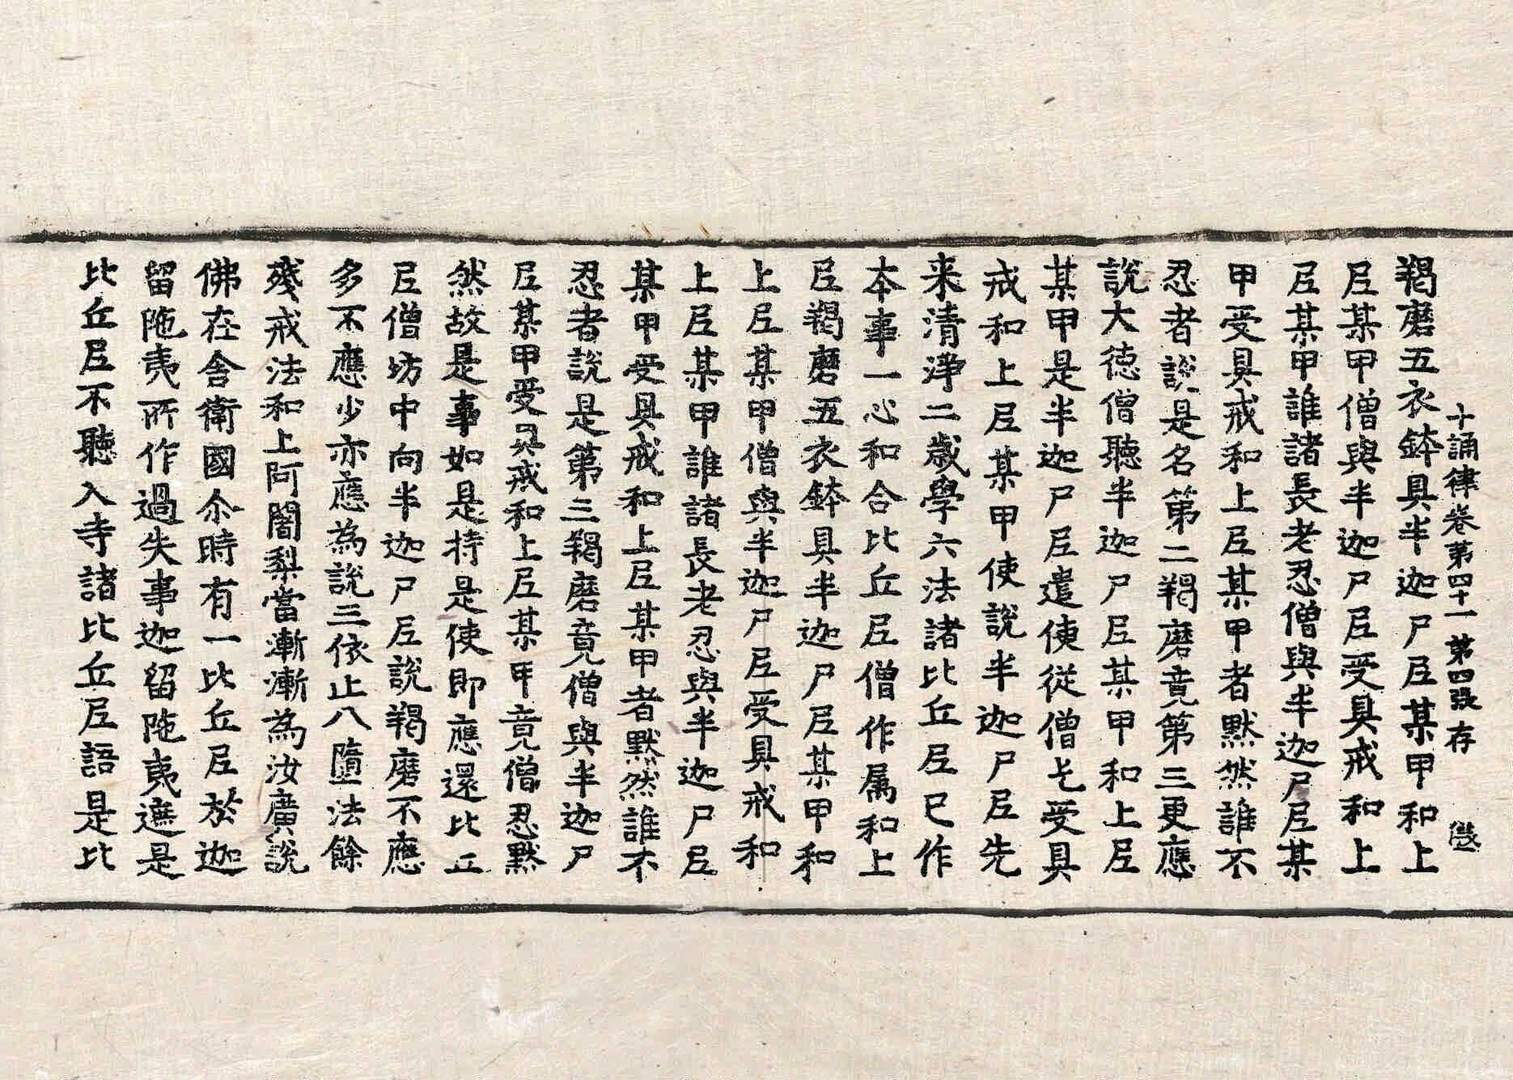 十誦律卷第四十一　第四張　存
羯磨五衣鉢具半迦尸尼某甲和上
尼某甲僧與半迦尸尼受具戒和上
尼某甲誰諸長老忍僧與半迦尸尼某
甲受具戒和上尼某甲者默然誰不
忍者說是名第二羯磨竟第三更應
說大德僧聽半迦尸尼某甲和上尼
某甲是半迦尸尼遣使從僧乞受具
戒和上尼某甲使說半迦尸尼先
来清淨二歲學六法諸比丘尼已作
本事一心和合比丘尼僧作属和上
尼羯磨五衣鉢具半迦尸尼某甲和
上尼某甲僧與半迦尸尼受具戒和
上尼某甲誰諸長老忍與半迦尸尼
某甲受具戒和上尼某甲者默然誰不
忍者說是第三羯磨竟僧與半迦尸
尼某甲受具戒和上尼某甲竟僧忍默
然故是事如是持是使即應還比丘
尼僧坊中向半迦尸尼說羯磨不應
多不應少亦應為說三依止八墮法餘
残戒法和上阿闍梨當漸漸為汝廣說
佛在舍衛國尒時有一比丘尼於迦
留陁夷所作過失事迦留陁夷遮是
比丘尼不聽入寺諸比丘尼語是比